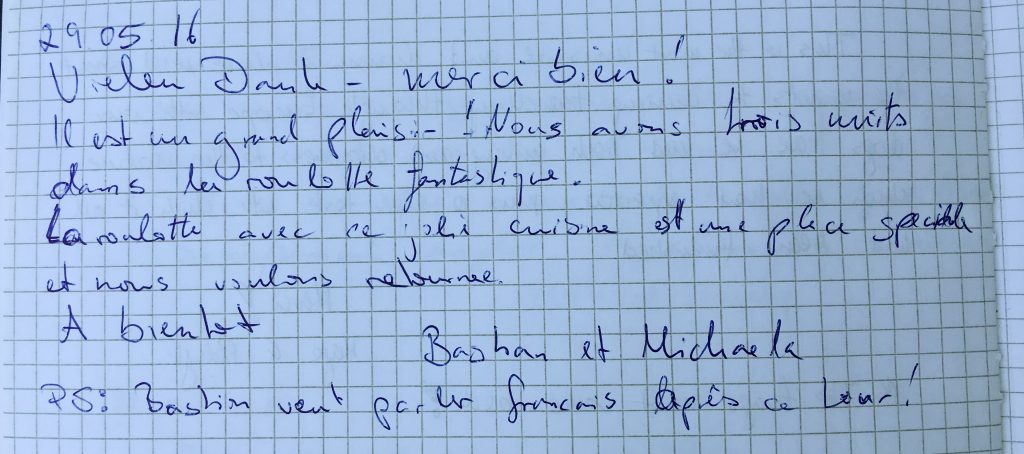 29 05 16
Vielen Dank - merci bien!
Il est un grand plaisir! Nous avons trois nuits
dans la roulotte fantastique.
La roulotte avec ce joli cuisine est une place speciale
et nous voulons retournee.
A bientot
Bastian et Michaela
PS: Bastian veut parler francais après ce tour!